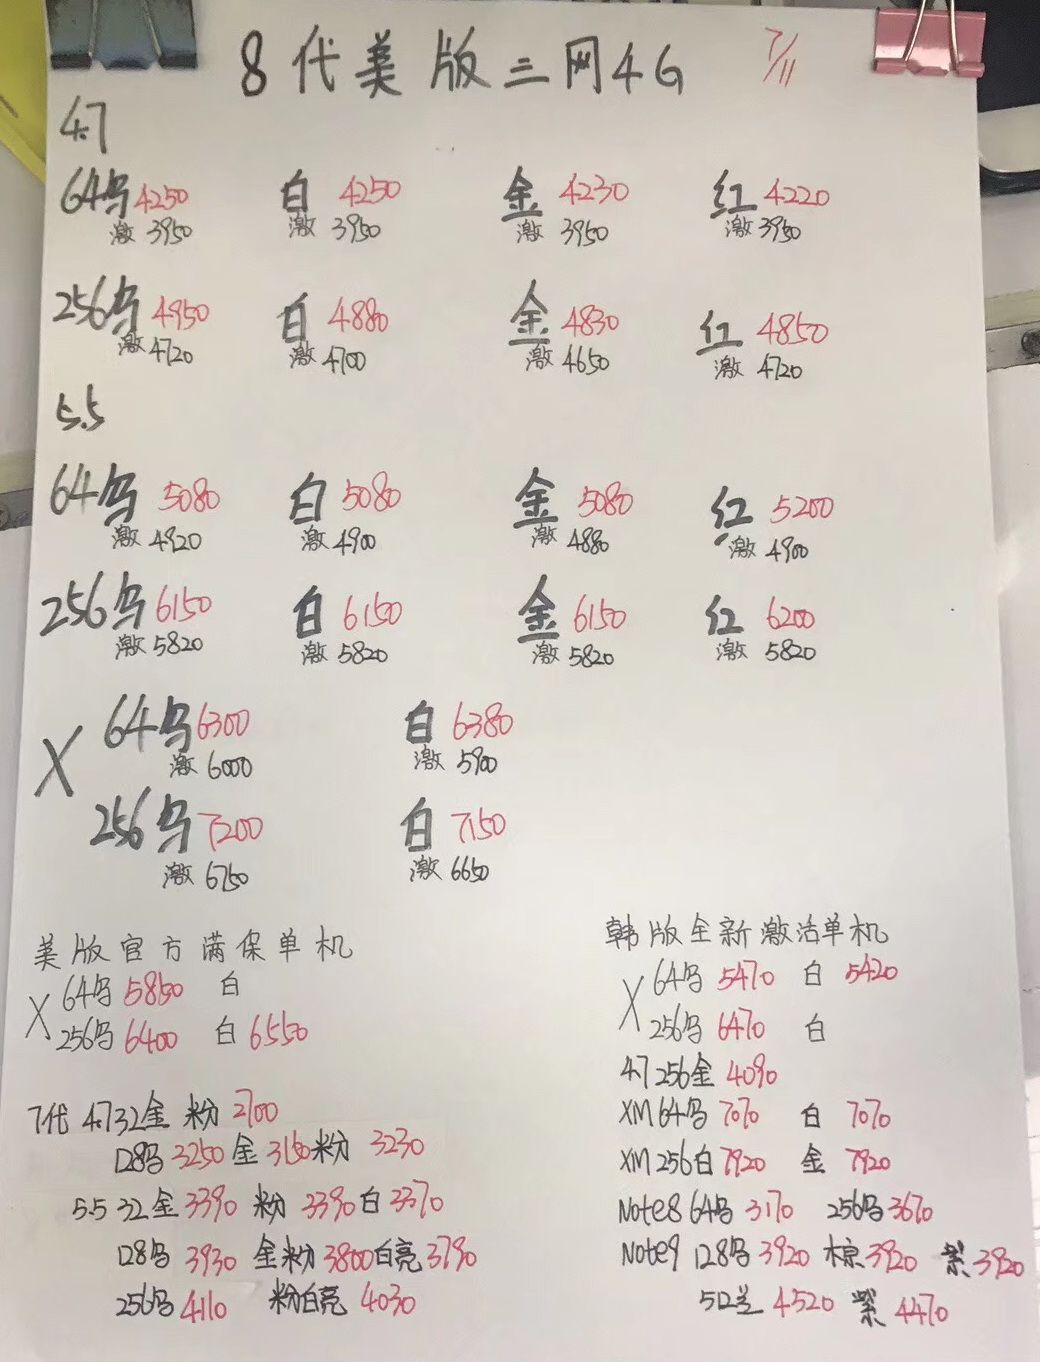 8代美版三网4G 7/11
4.7
64乌4250 白 4250 金 4230 红 4220
激 3950 激 3950 激 3950 激 3950
256乌 4950 白 4880 金 4830 红 4850
激 4720 激 4700 激 4650 激 4720
5.5
64乌 5080 白 5080 金 5080 红 5200
激 4920 激 4900 激 4880 激 4900
256乌 6150 白 6150 金 6150 红 6200
激 5820 激 5820 激 5820 激 5820
X 64乌6300 白 6380
激 6000 激 5900
256乌 7200 白 7150
激 6750 激 6650
美版官方满保单机
X 64乌 5850 白
256乌 6400 白 6550
7代 4.7 32金 粉 2700
128乌 3250 金 3150 粉 3230
5.5 32金 3390 粉 3390 白 3370
128乌 3930 金粉 3800 白亮 3790
256乌 4110 粉白亮 4030
韩版全新激活单机
X 64乌 5470 白 5420
256乌 6470 白
4.7 256金 4090
XM 64乌 7070 白 7070
XM 256白 7920 金 7920
Note8 64乌 3170 256乌 3670
Note9 128乌 3920 棕 3920 紫 3920
512兰 4520 紫 4470